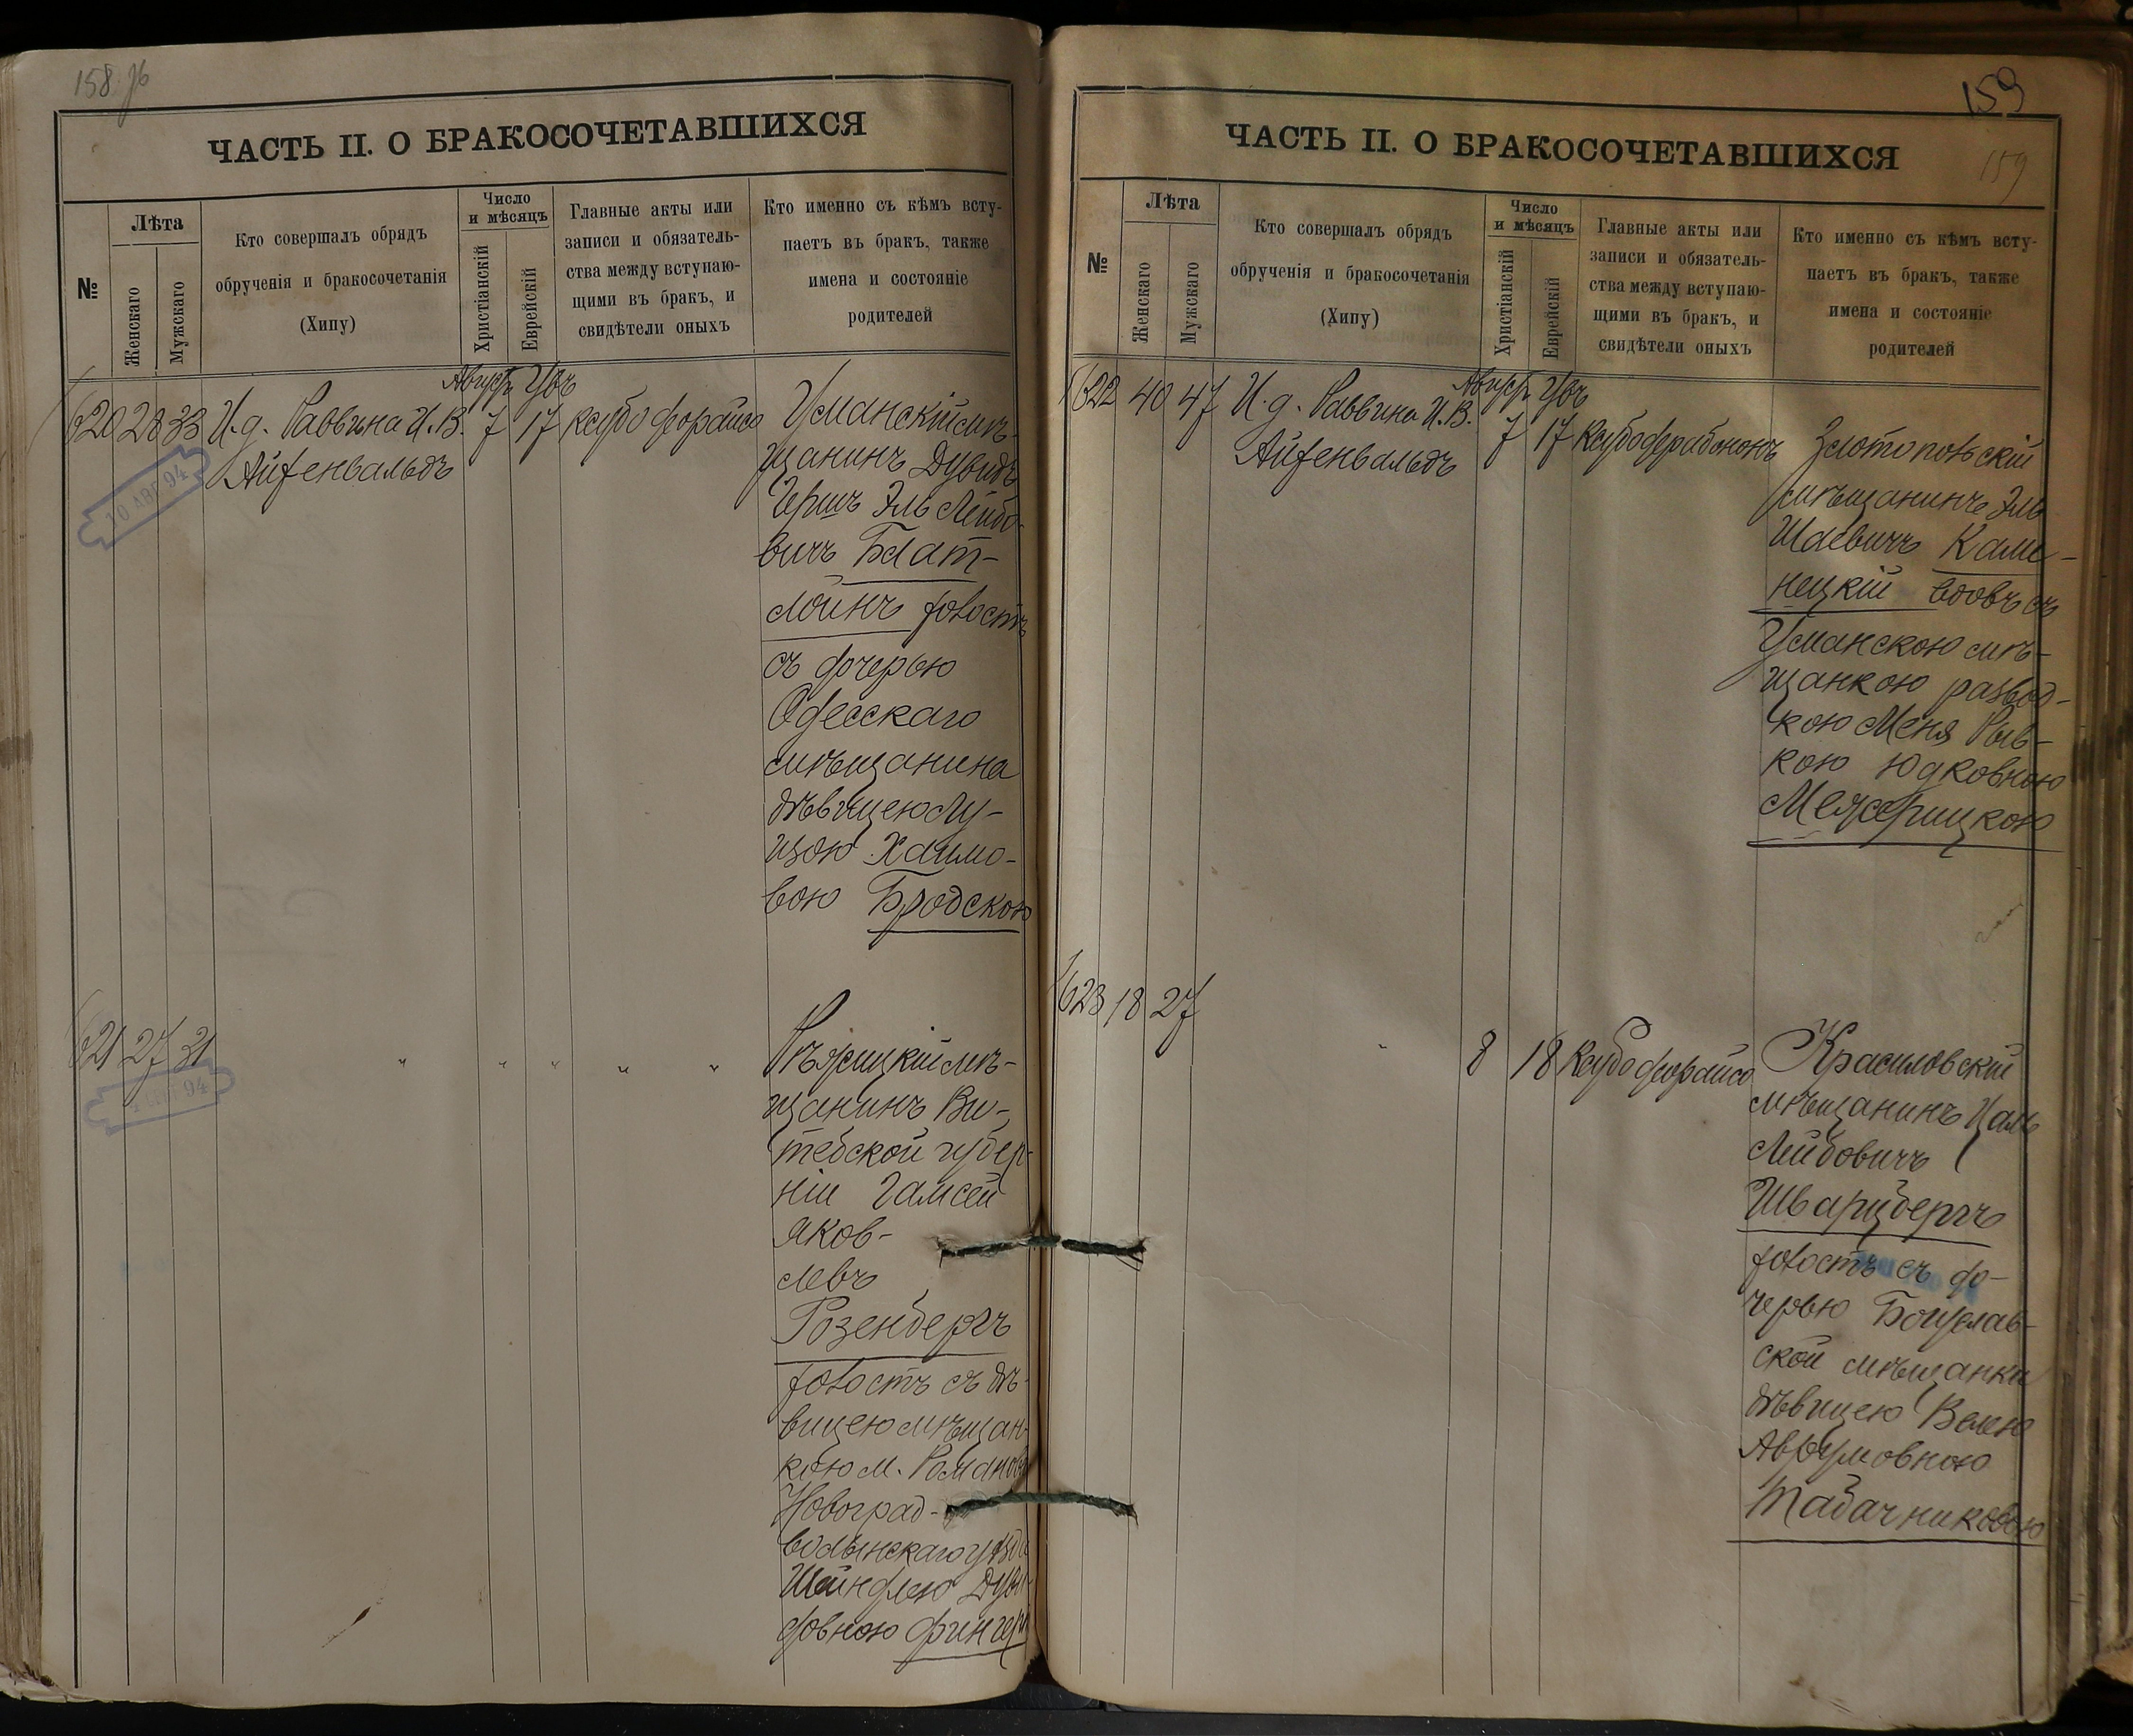 158 об
ЧАСТЬ II. О БРАКОСОЧЕТАВШИХСЯ
№
Лѣта
Женскаго
Мужскаго
Кто совершалъ обрядъ
обрученія и бракосочетанія
(Хипу)
Число
и мѣсяцъ
Христіанскій
Еврейскій
Главные акты или
записи и обязатель-
ства между вступаю-
щими въ бракъ, и
свидѣтели оныхъ
Кто именно съ кѣмъ всту-
паетъ въ бракъ, также
имена и состояніе
родителей
620 28 33 И.д. Раввина И.В.
Айзенвальдъ
10 АВГ 94
Август
7 17 Ксубо деорайсо
Уманскій мѣ-
щанинъ Дувидъ
Гершъ Эль Лейбо-
вичъ Блат-
лойнъ холостъ
съ дочерью
Одесскаго
мѣщанина
дѣвицею Лу-
изою Хаимо-
вою Бродскою
621 27 31 " " " " "
94
Рѣжицкій мѣ-
щанинъ Ви-
тебской губер-
ніи Гамсей
Яков-
левъ
Розенбергъ
холостъ съ дѣ-
вицею мѣщан-
кою м. Романова
Новоград-
волынскаго уѣзда
Шейндлею Дуви-
довною Фингер
159
159
ЧАСТЬ II. О БРАКОСОЧЕТАВШИХСЯ
№
Лѣта
Женскаго
Мужскаго
Кто совершалъ обрядъ
обрученія и бракосочетанія
(Хипу)
Число
и мѣсяцъ
Христіанскій
Еврейскій
Главные акты или
записи и обязатель-
ства между вступаю-
щими въ бракъ, и
свидѣтели оныхъ
Кто именно съ кѣмъ всту-
паетъ въ бракъ, также
имена и состояніе
родителей
622 40 47 И.д. Раввина И.В.
Айзенвальдъ
Август
7 17 Ксубо дерабононъ
Златопольскій
мѣщанинъ Эль
Шаевичъ Каме-
нецкій вдовъ съ
Уманскою мѣ-
щанкою развод-
кою Меня Рыв-
кою Юдковною
Межерицкою
623 18 27 "
8 18 Ксубо деорайсо
Красиловскій
мѣщанинъ Цаль
Лейбовичъ
Шварцбергъ
холостъ съ до-
черью Богуслав-
ской мѣщанки
дѣвицею Велею
Аврумовною
Табачниковою